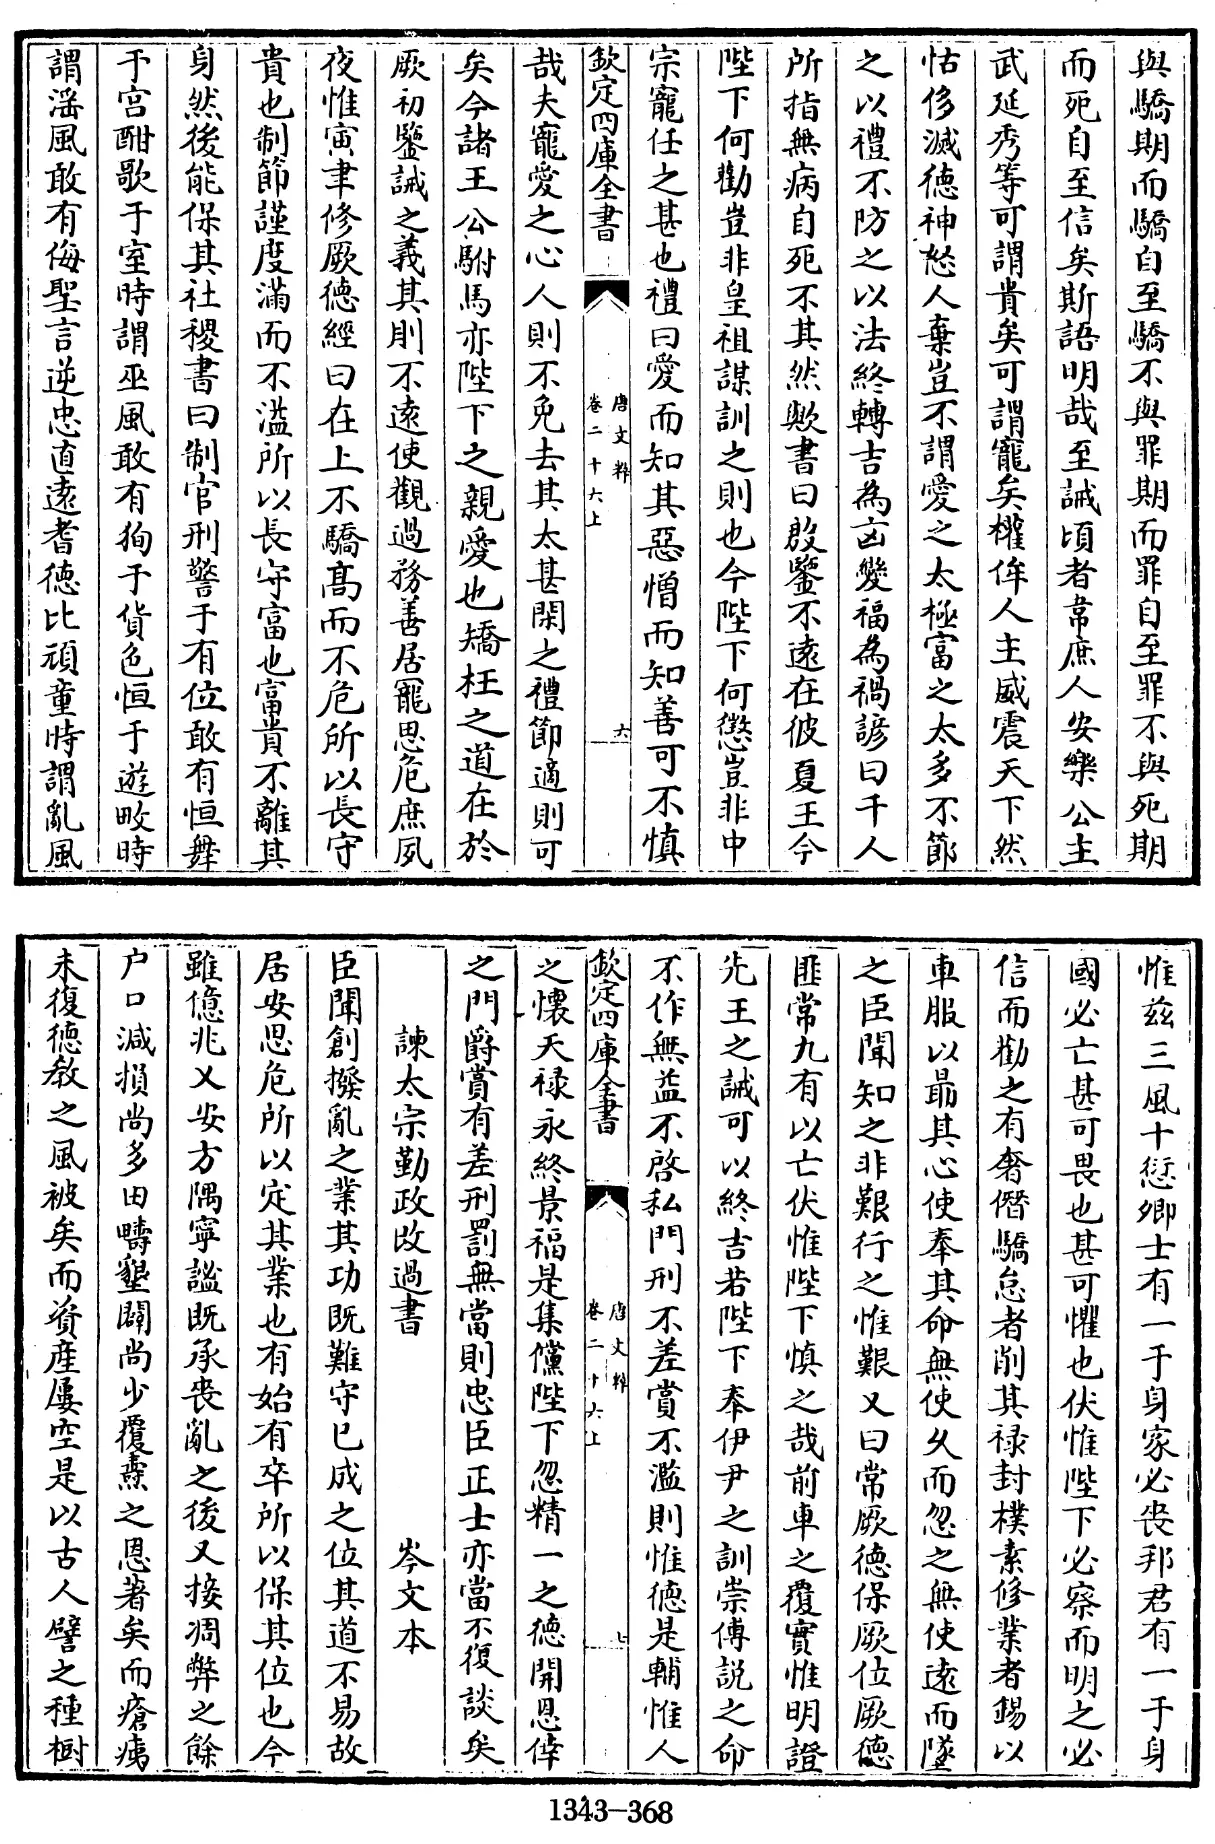 與驕期而驕自至驕不與罪期而罪自至罪不與死期
而死自至信矣斯語明哉至誡頃者韋庶人安樂公主
武延秀等可謂貴矣可謂寵矣權侔人主威震天下然
怙侈滅德神怒人棄豈不謂愛之太極富之太多不節
之以禮不防之以法終轉吉為凶變福為禍諺曰千人
所指無病自死不其然歟書曰殷鑒不遠在彼夏王今
陛下何勸豈非皇祖謀訓之則也今陛下何懲豈非中
宗寵任之甚也禮曰愛而知其惡憎而知善可不慎
欽定四庫全書
唐文粹
卷二十六上
六
哉夫寵愛之心人則不免去其太甚閑之禮節適則可
矣今諸王公駙馬亦陛下之親愛也矯枉之道在於
厥初鑒誡之義其則不遠使觀過務善居寵思危庶夙
夜惟寅聿修厥德經曰在上不驕高而不危所以長守
貴也制節謹度滿而不溢所以長守富也富貴不離其
身然後能保其社稷書曰制官刑警于有位敢有恒舞
于宫酣歌于室時謂巫風敢有殉于貨色恒于遊畋時
謂滛風敢有侮聖言逆忠直遠耆德比頑童時謂亂風
惟兹三風十愆卿士有一于身家必喪邦君有一于身
國必亡甚可畏也甚可懼也伏惟陛下必察而明之必
信而勸之有奢僭驕怠者削其禄封樸素修業者錫以
車服以勗其心使奉其命無使久而忽之無使遠而墜
之臣聞知之非艱行之惟艱又曰常厥德保厥位厥德
匪常九有以亡伏惟陛下慎之哉前車之覆實惟明證
先王之誡可以終吉若陛下奉伊尹之訓崇傅説之命
不作無益不啓私門刑不差賞不濫則惟德是輔惟人
欽定四庫全書
唐文粹
卷二十六上
七
之懷天禄永終景福是集儻陛下忽精一之德開恩倖
之門爵賞有差刑罰無當則忠臣正士亦當不復談矣
諫太宗勤政改過書　岑文本
臣聞創撥亂之業其功既難守已成之位其道不易故
居安思危所以定其業也有始有卒所以保其位也今
雖億兆乂安方隅寧謐既承喪亂之後又接凋弊之餘
户口減損尚多田疇墾闢尚少覆燾之恩著矣而瘡痍
未復德教之風被矣而資産屢空是以古人譬之種樹
1343-368